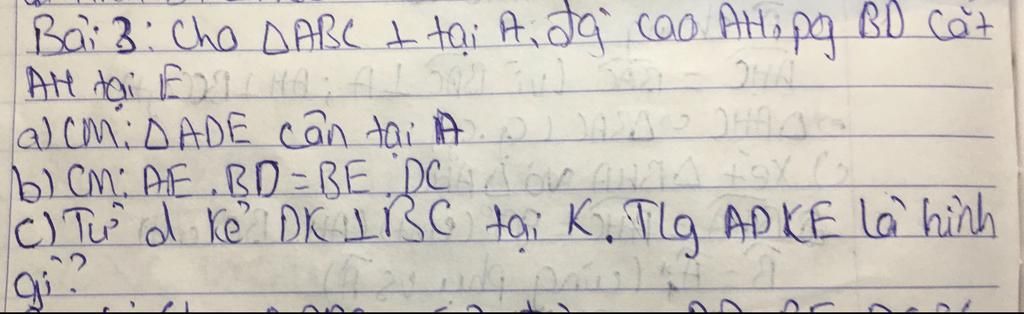 Bài 3: Cho △ABC ⊥ tại A, đg cao AH, pg BD cắt
AH tại E
a) CM: △ADE cân tại A
b) CM: AE.BD = BE.DC
c) Từ d kẻ DK⊥BC tại K. Tlg ADKE là hình
gì?